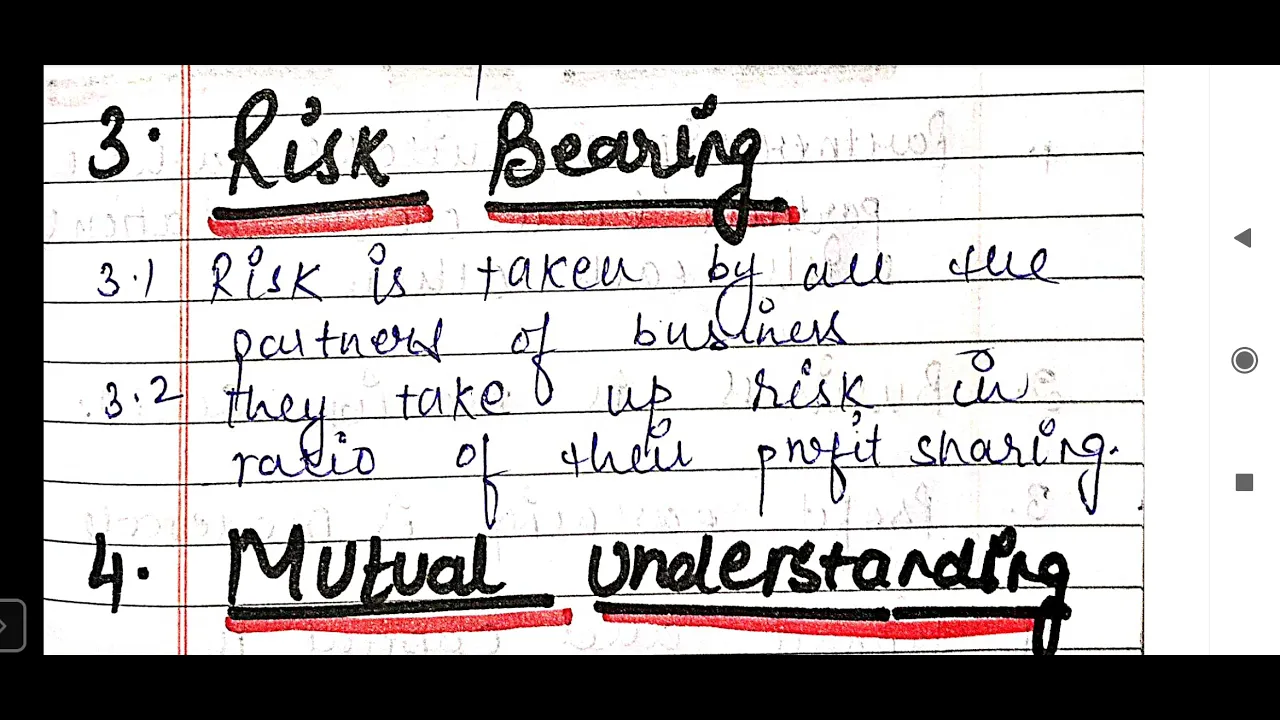 3. Risk Bearing
3.1 Risk is taken by all the
partners of business
3.2 they take up risk in
ratio of their profit sharing.
4. Mutual Understanding